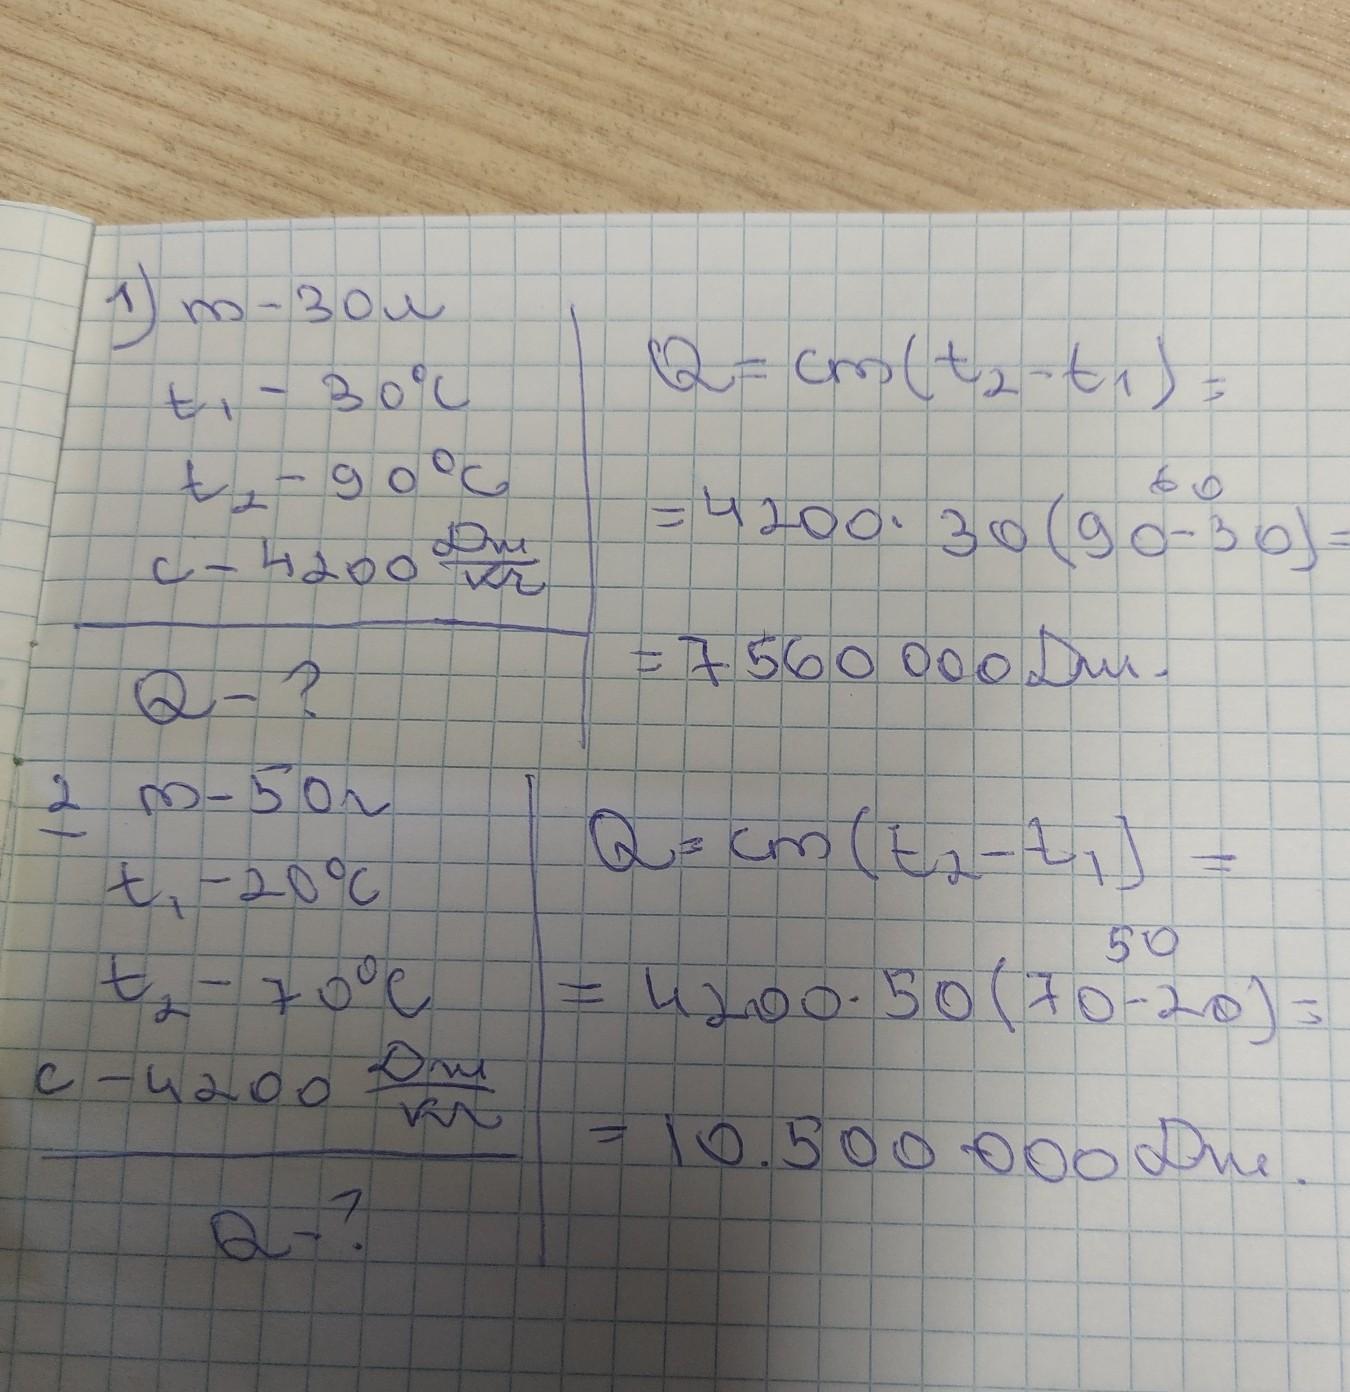 1) m - 30 л
t₁ - 30°C
t₂ - 90°C
c - 4200 Дж/кг
Q - ?
Q = cm(t₂ - t₁) =
60
= 4200 · 30 (90 - 30) =
= 7.560 000 Дж.
2 m - 50 г
t₁ - 20°C
t₂ - 70°C
c - 4200 Дж/кг
Q - ?
Q = cm(t₂ - t₁) =
50
= 4200 · 50 (70 - 20) =
= 10.500 000 Дж.